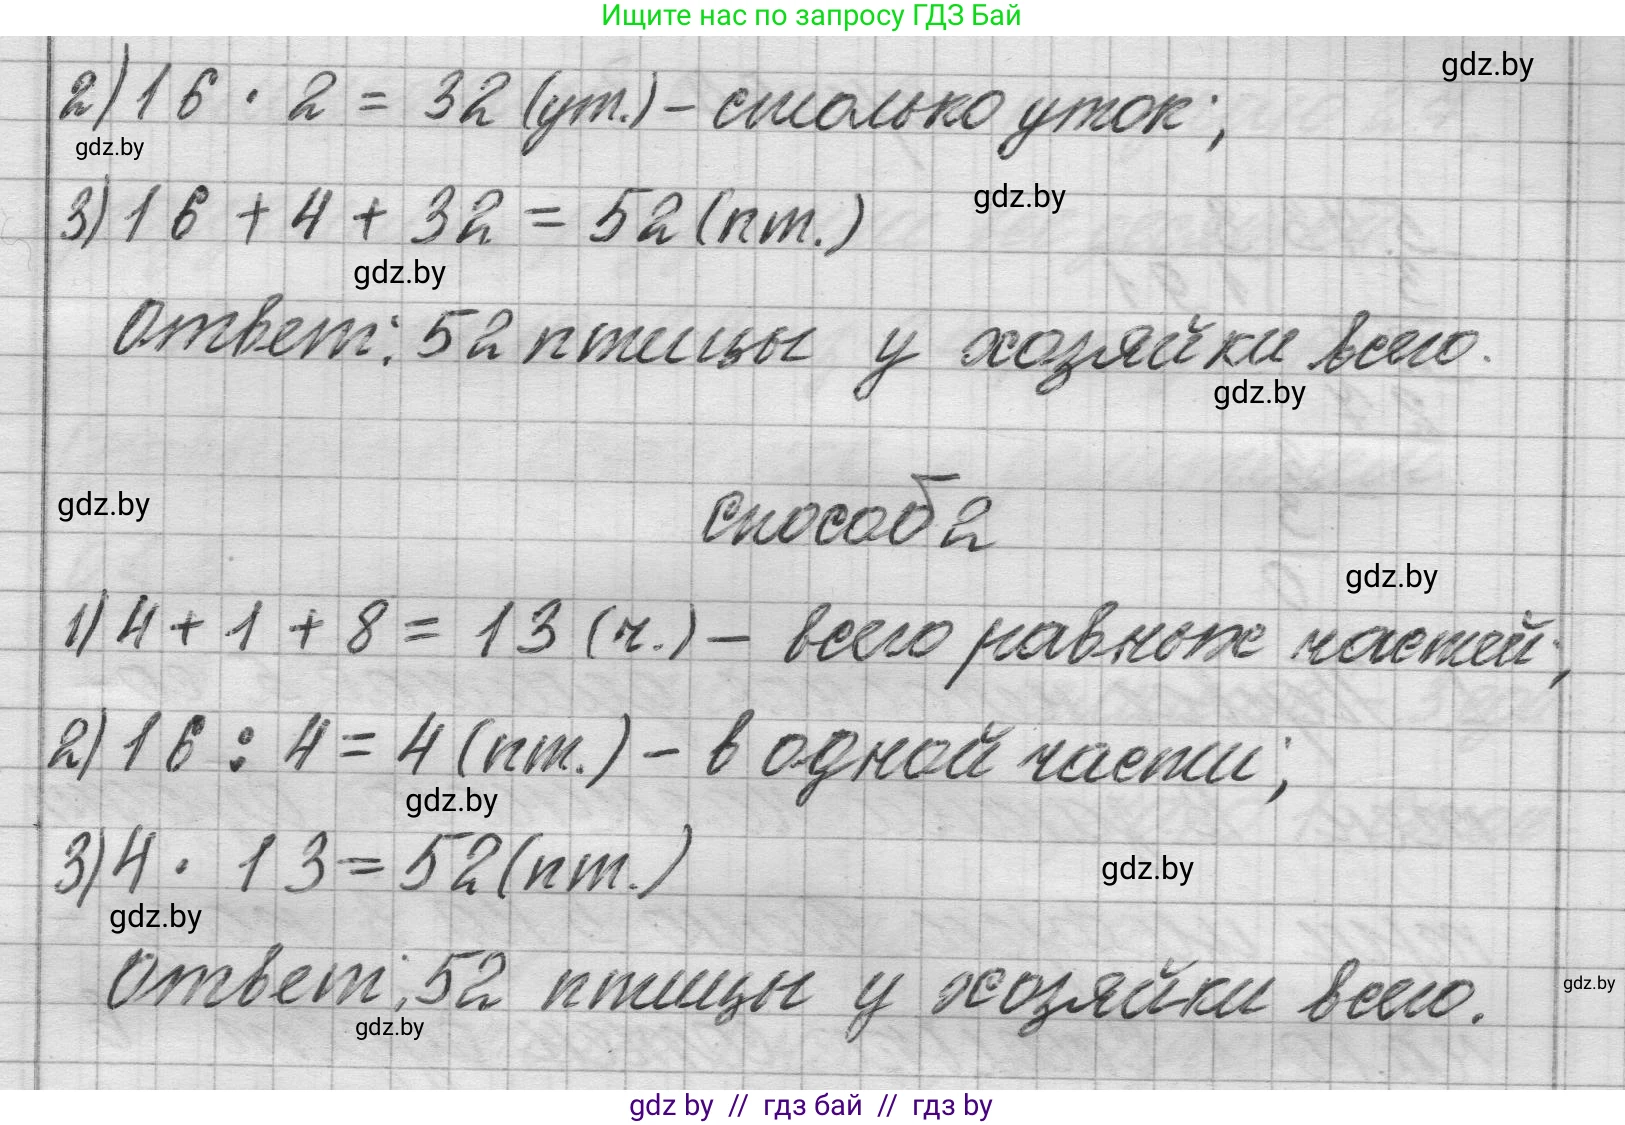 Ищите нас по запросу ГДЗ Бай
gdz.by
2) 16 · 2 = 32 (ут.) – столько уток;
gdz.by
3) 16 + 4 + 32 = 52 (пт.)
gdz.by
gdz.by
Ответ: 52 птицы у хозяйки всего.
gdz.by
gdz.by
способ 2
gdz.by
1) 4 + 1 + 8 = 13 (ч.) – всего равных частей;
2) 16 : 4 = 4 (пт.) – в одной части;
gdz.by
3) 4 · 13 = 52 (пт.)
gdz.by
gdz.by
Ответ: 52 птицы у хозяйки всего.
gdz.by
gdz.by
gdz by // гдз бай // гдз by